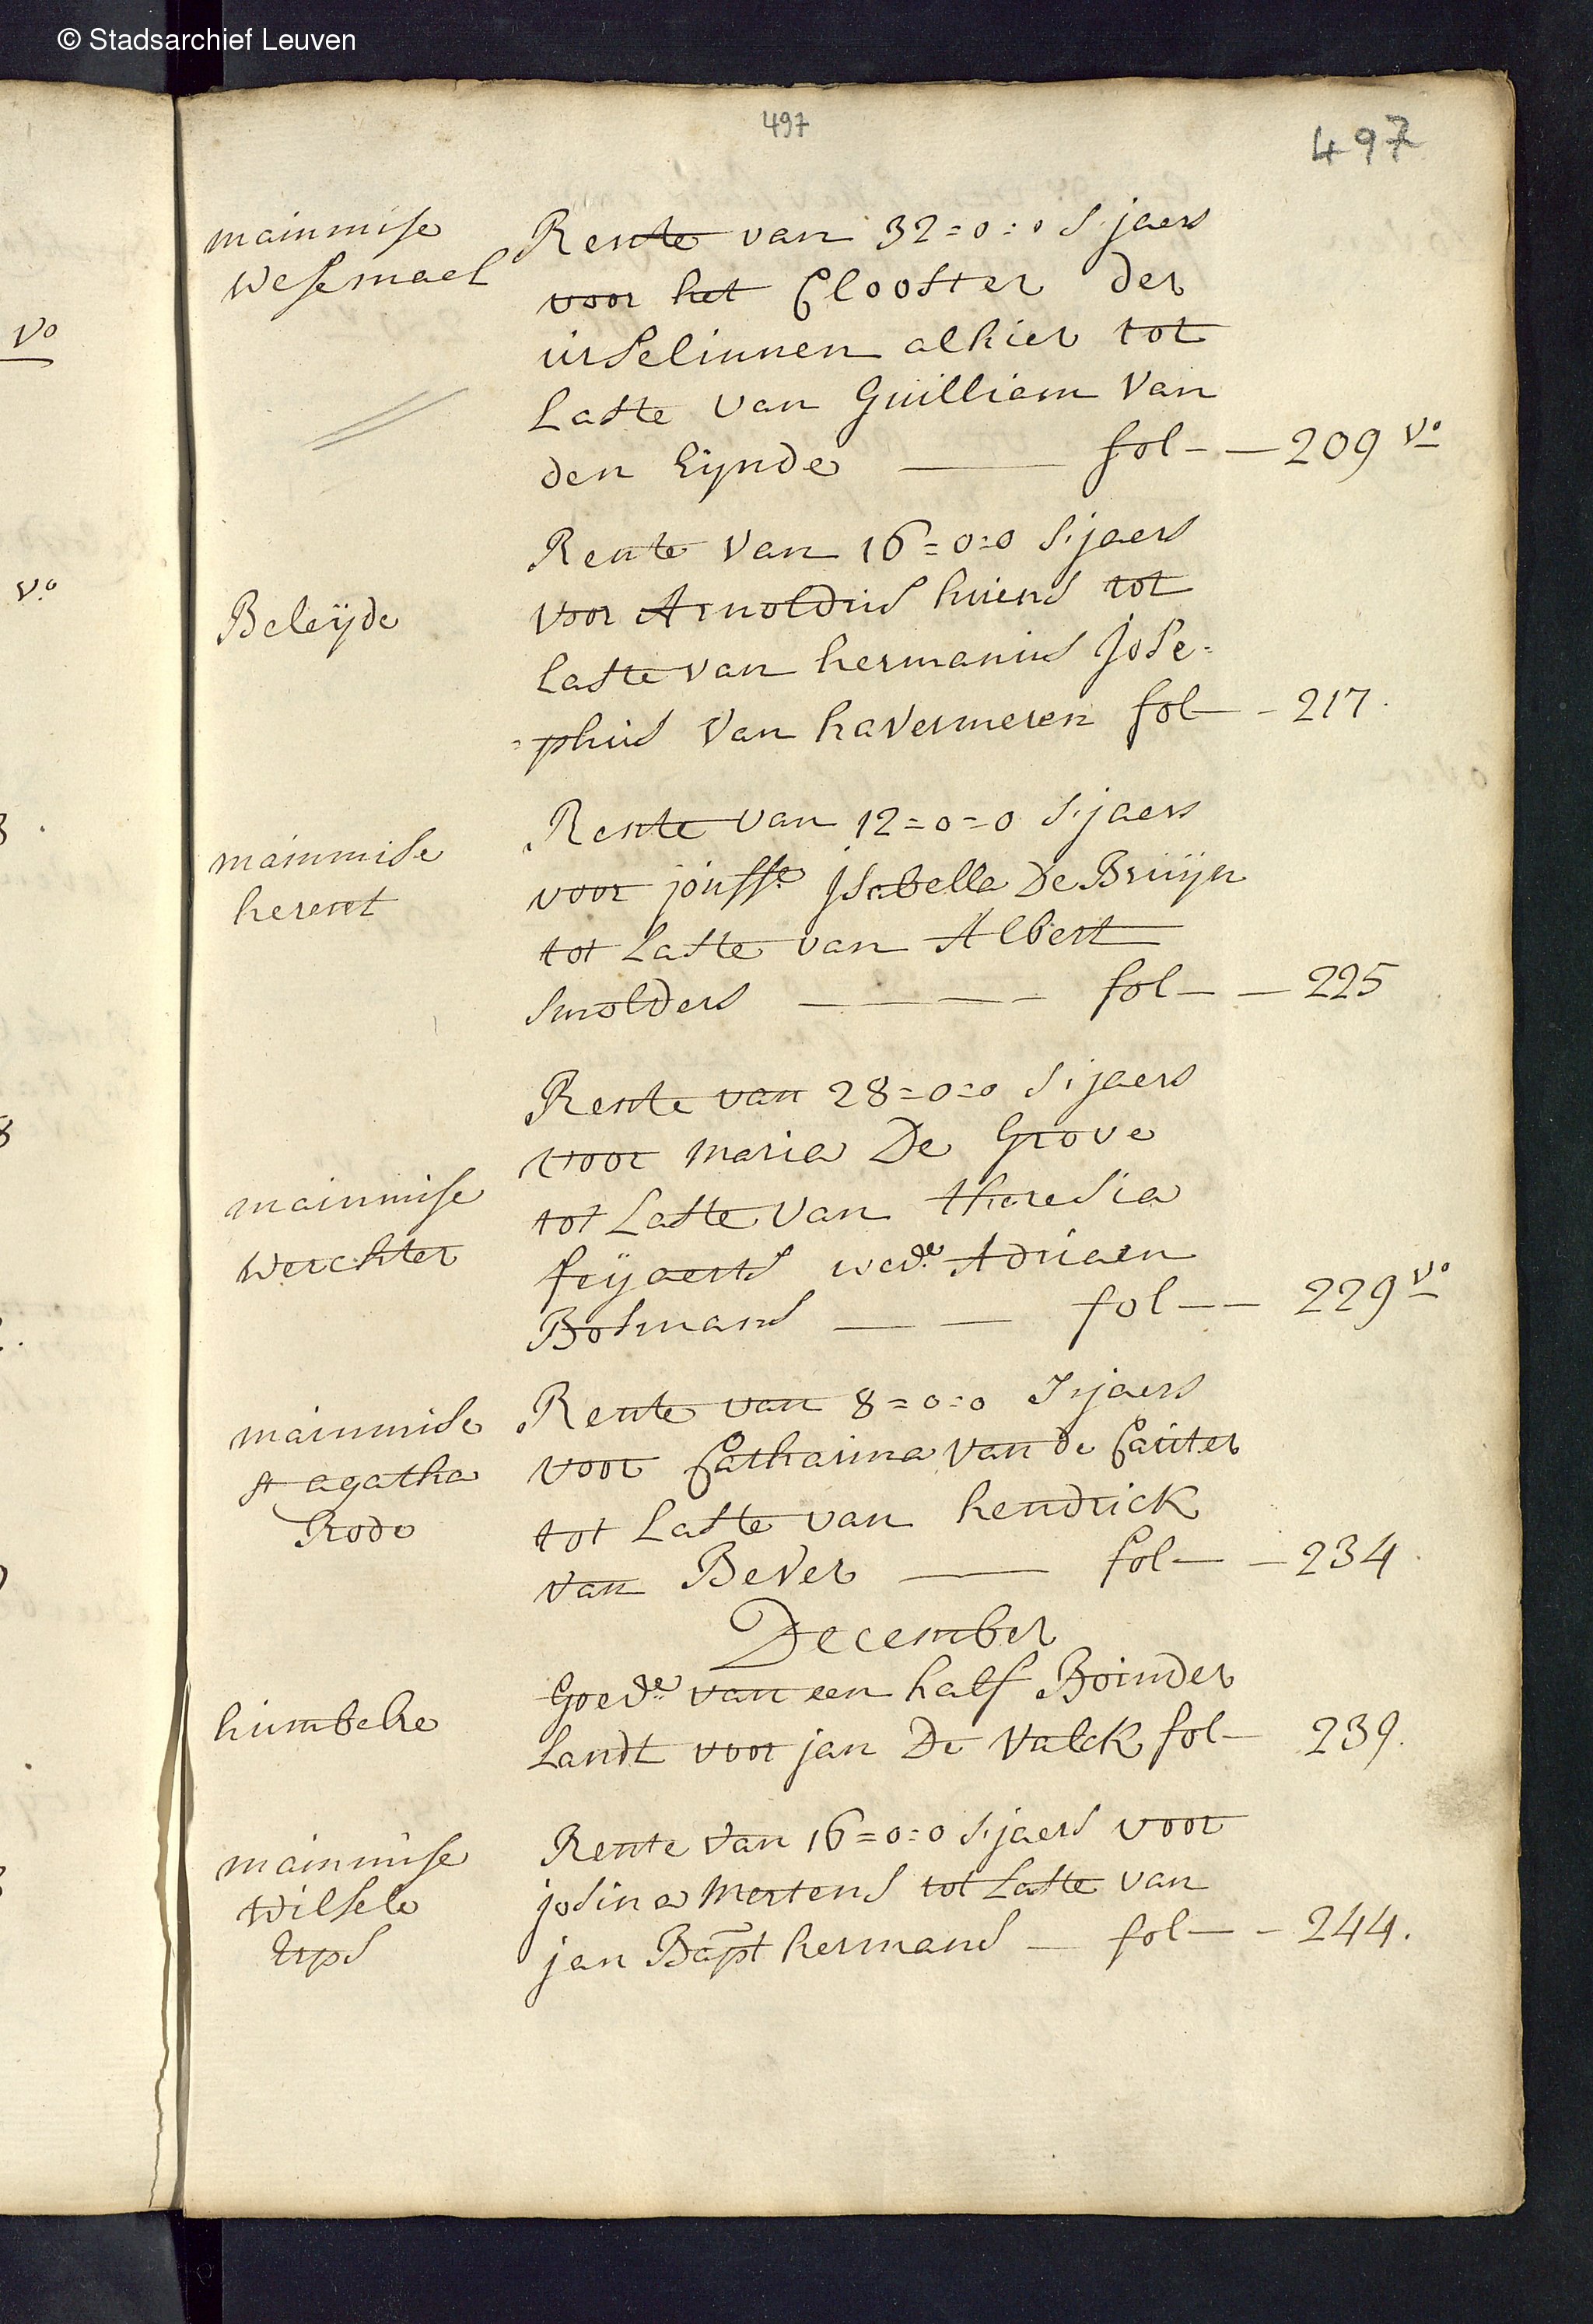 © Stadsarchief Leuven
497
497
mainmise
Wesemael
Rente van 32=0:0 s'jaers
voor het Clooster der
urselinnen alhier tot
Laste van Guilliam Van
den Eynde — fol - — 209 vo
Beleijde
Rente van 16=0:0 s'jaers
voor Arnoldus huens tot
laste van hermanus Jose=
=phus van havermeren fol - 217.
mainmise
herent
Rente van 12=0=0 s'jaers
voor jouffe Isabella De Bruijn
tot Laste van Albert
smolders — fol - — 225
mainmise
Werchter
Rente van 28=0:0 s'jaers
voor maria De Grove
tot Laste van theresia
feijaerts wede Adriaen
Bosmans — — fol — 229 vo
mainmise
st agatha
Rode
Rente van 8=0:0 s'jaers
voor Catharina van de Cauter
tot Laste van hendrick
van Bever — fol - — 234
December
humbeke
Goede van een half Boinder
Landt voor jan De Valck fol - 239.
mainmise
Wilsele
Erps
Rente van 16=0:0 s'jaers voor
josina Mertens tot Laste van
jan Bapt hermans — fol - - 244.
vo
vo